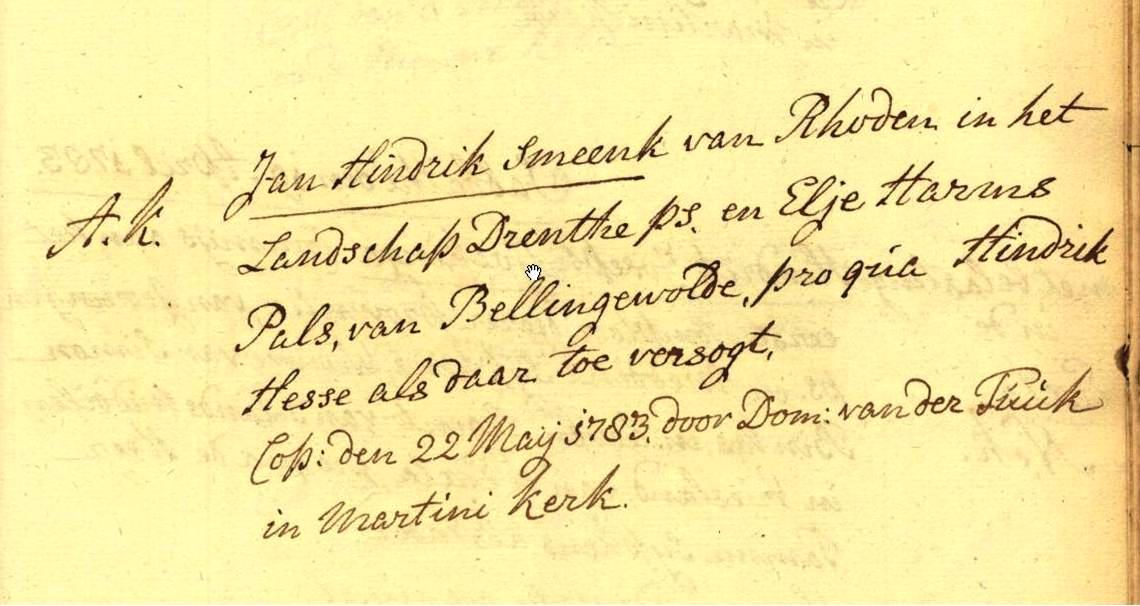 Jan Hindrik Smeenk van Rhoden in het
A.K. Landschap Drenthe ps. en Elje Harms
Pals, van Bellingewolde, pro qua Hindrik
Hesse als daar toe versogt,
Cop: den 22 Maij 1783. door Dom: van der Tuuk
in Martini Kerk.